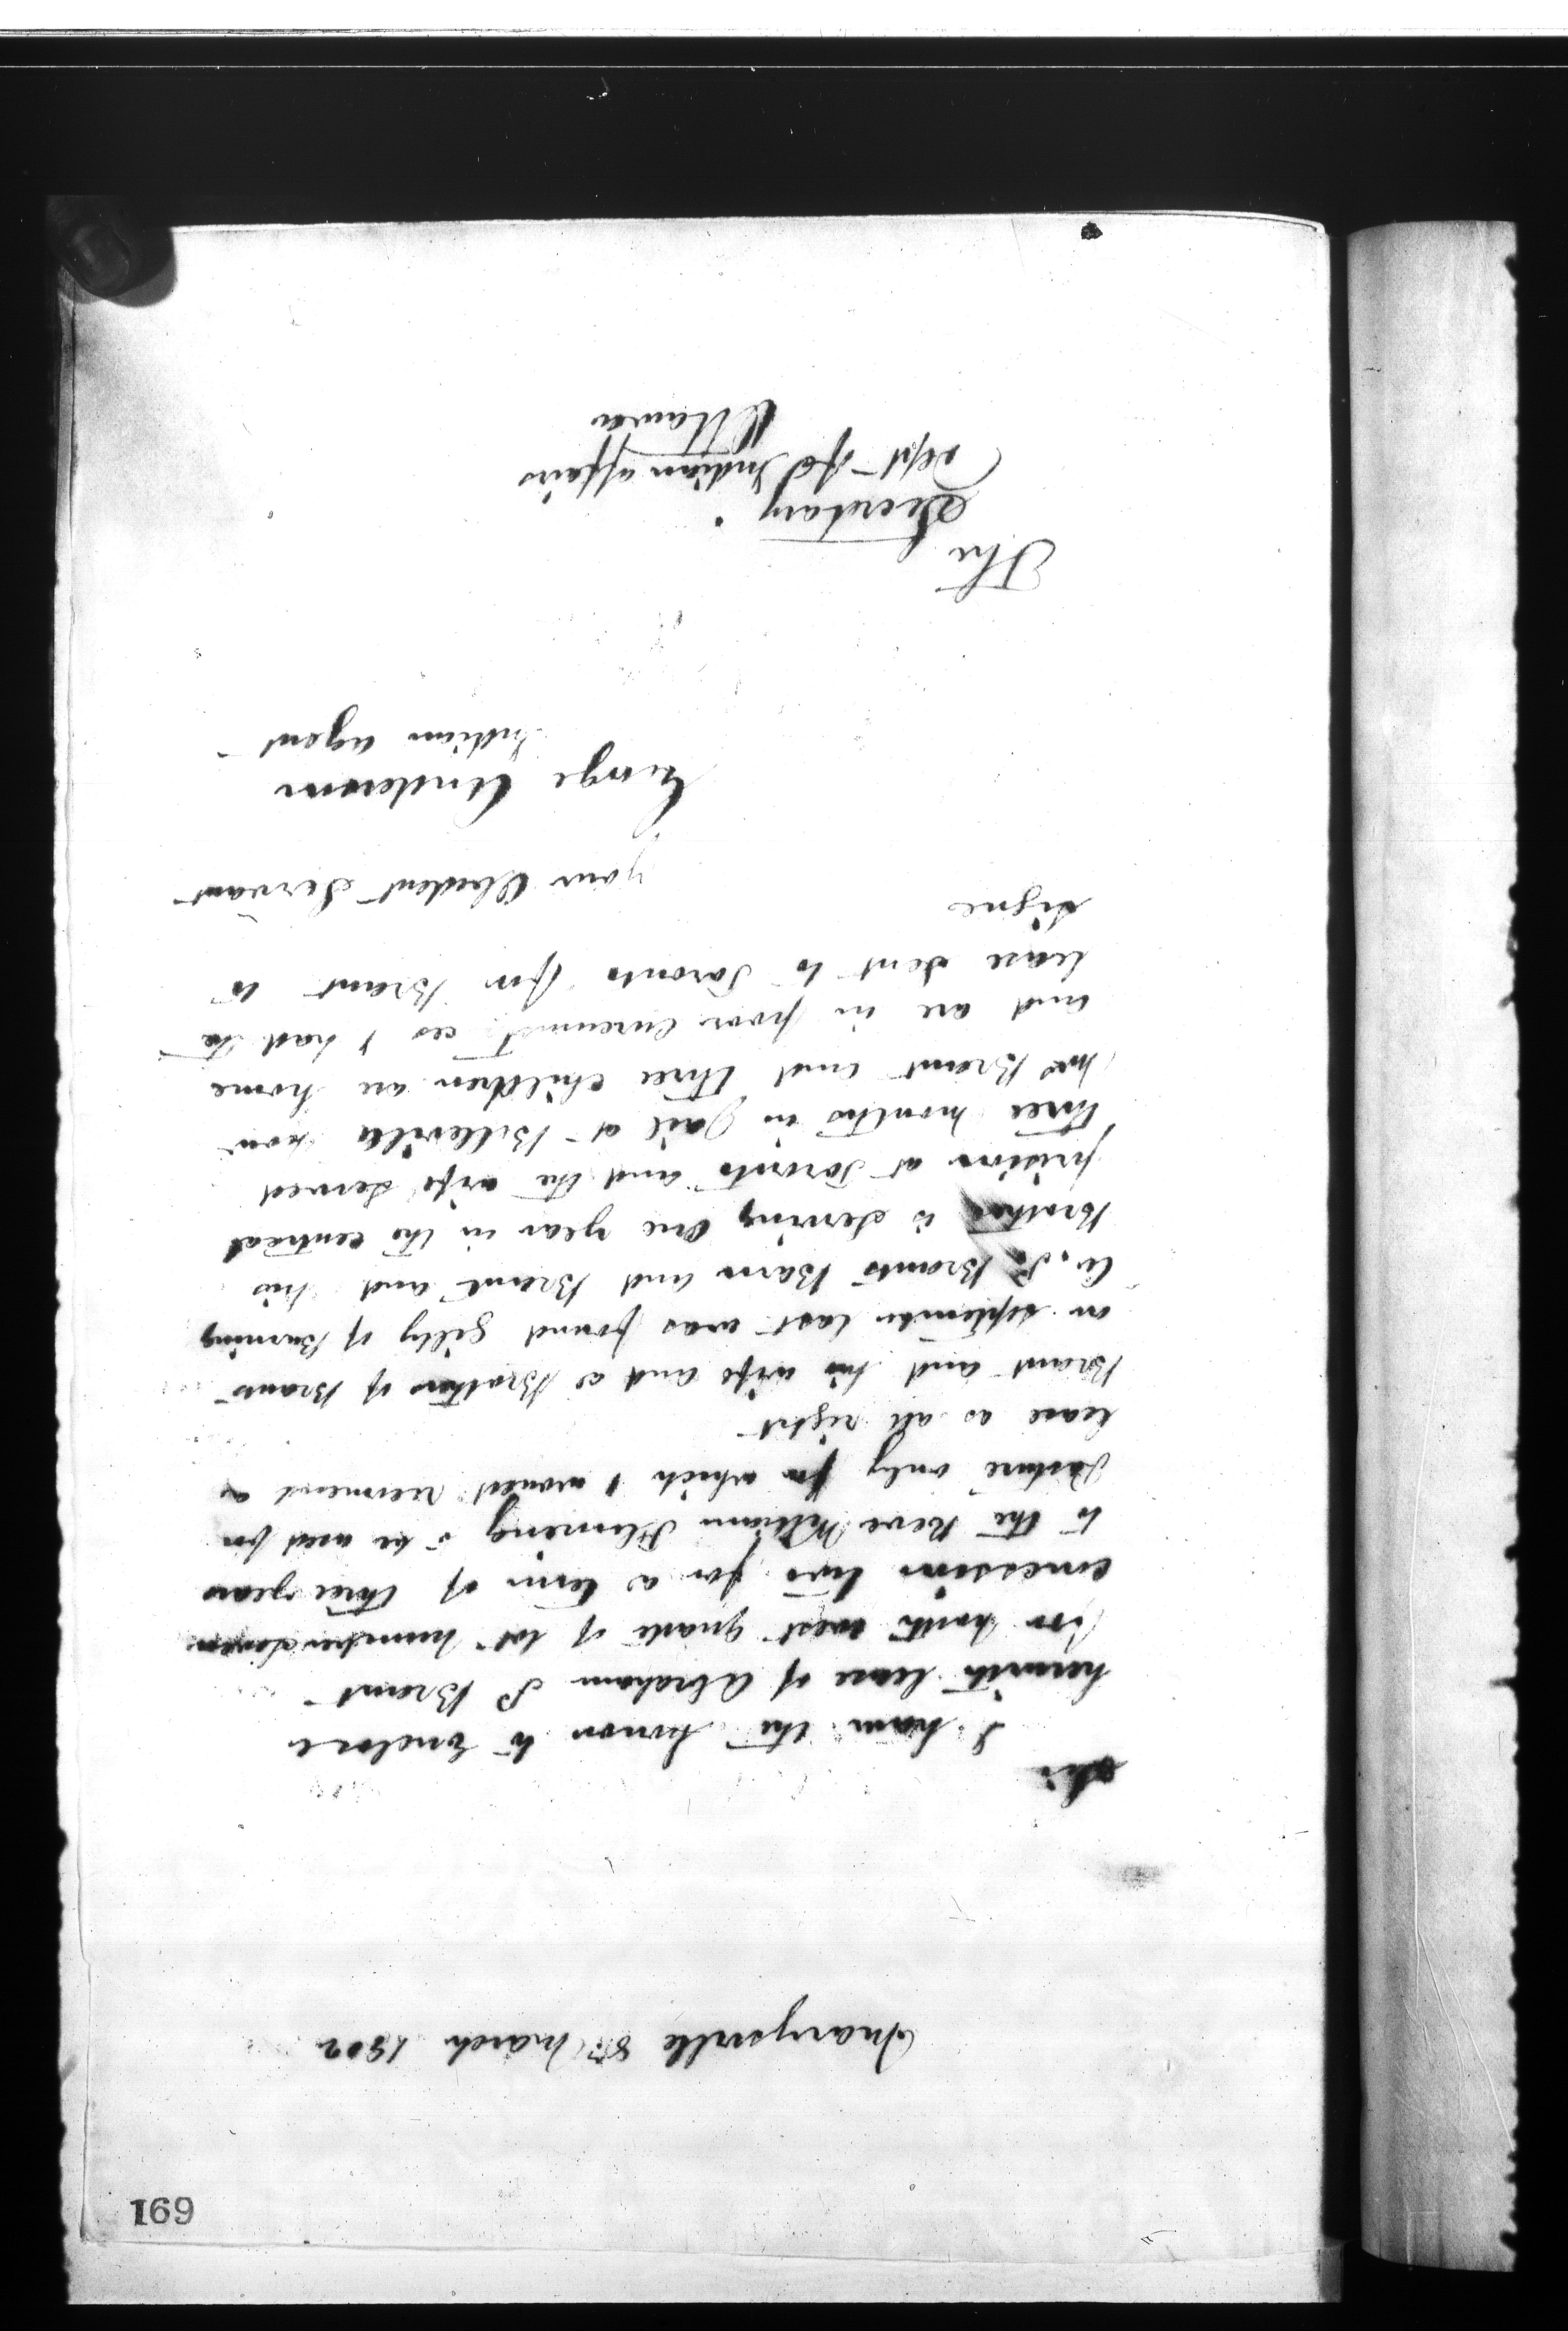 169
Marysville 8th March 1902
Sir
I have the honor to Enclose
herewith lease of Abraham S Brant
for north west quarte of lot number
concession two for a term of three years
to the Reve William Fleming to be used for
Pasture only for which I would recomend a
lease as all right
Brant and his wife and a Brother of Brants
on september last was found gilty of Burning
A. S. Brants Barn and Brant and his
Brother is serving One year in the central
prison at Toronto and the wife served
three months in Jail at Belleville now
Mrs Brant and three children are home
and are in poor I had the
lease sent to Toronto for Brant to
signe
your Obedent Servant
George Anderson
Indian agent
The
Secretary
Dept of Indian affairs
Ottawa